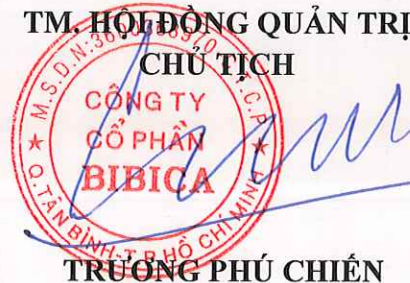 TM. HỘI ĐỒNG QUẢN TRỊ
CHỦ TỊCH
CÔNG TY
CỔ PHẦN
BIBICA
Q. TÂN BÌNH - T.P HỒ CHÍ MINH
TRƯƠNG PHÚ CHIẾN